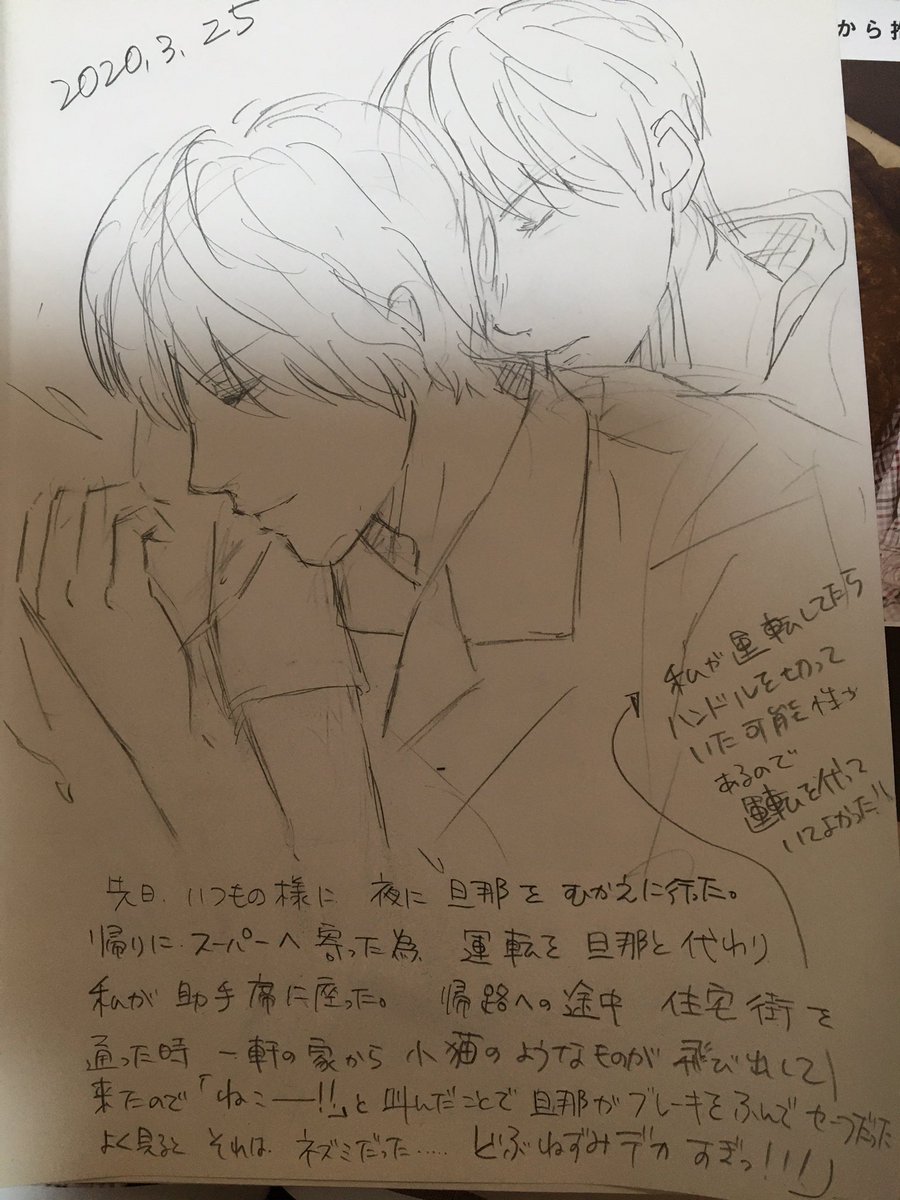 2020.3.25
から
私が運転してたら
ハンドルを切って
いた可能性が
あるので
運転を代って
いてよかった!!
先日、いつもの様に 夜に旦那を むかえに行った。
帰りに スーパーへ 寄った為 運転を 旦那と 代わり
私が 助手席に座った。 帰路への途中 住宅街を
通った時 一軒の家から 小猫のようなものが 飛び出して
来たので「ねこー!!」と叫んだことで 旦那がブレーキをふんで セーフだった
よく見ると それは ネズミだった…… どぶねずみデカ すぎっ!!!